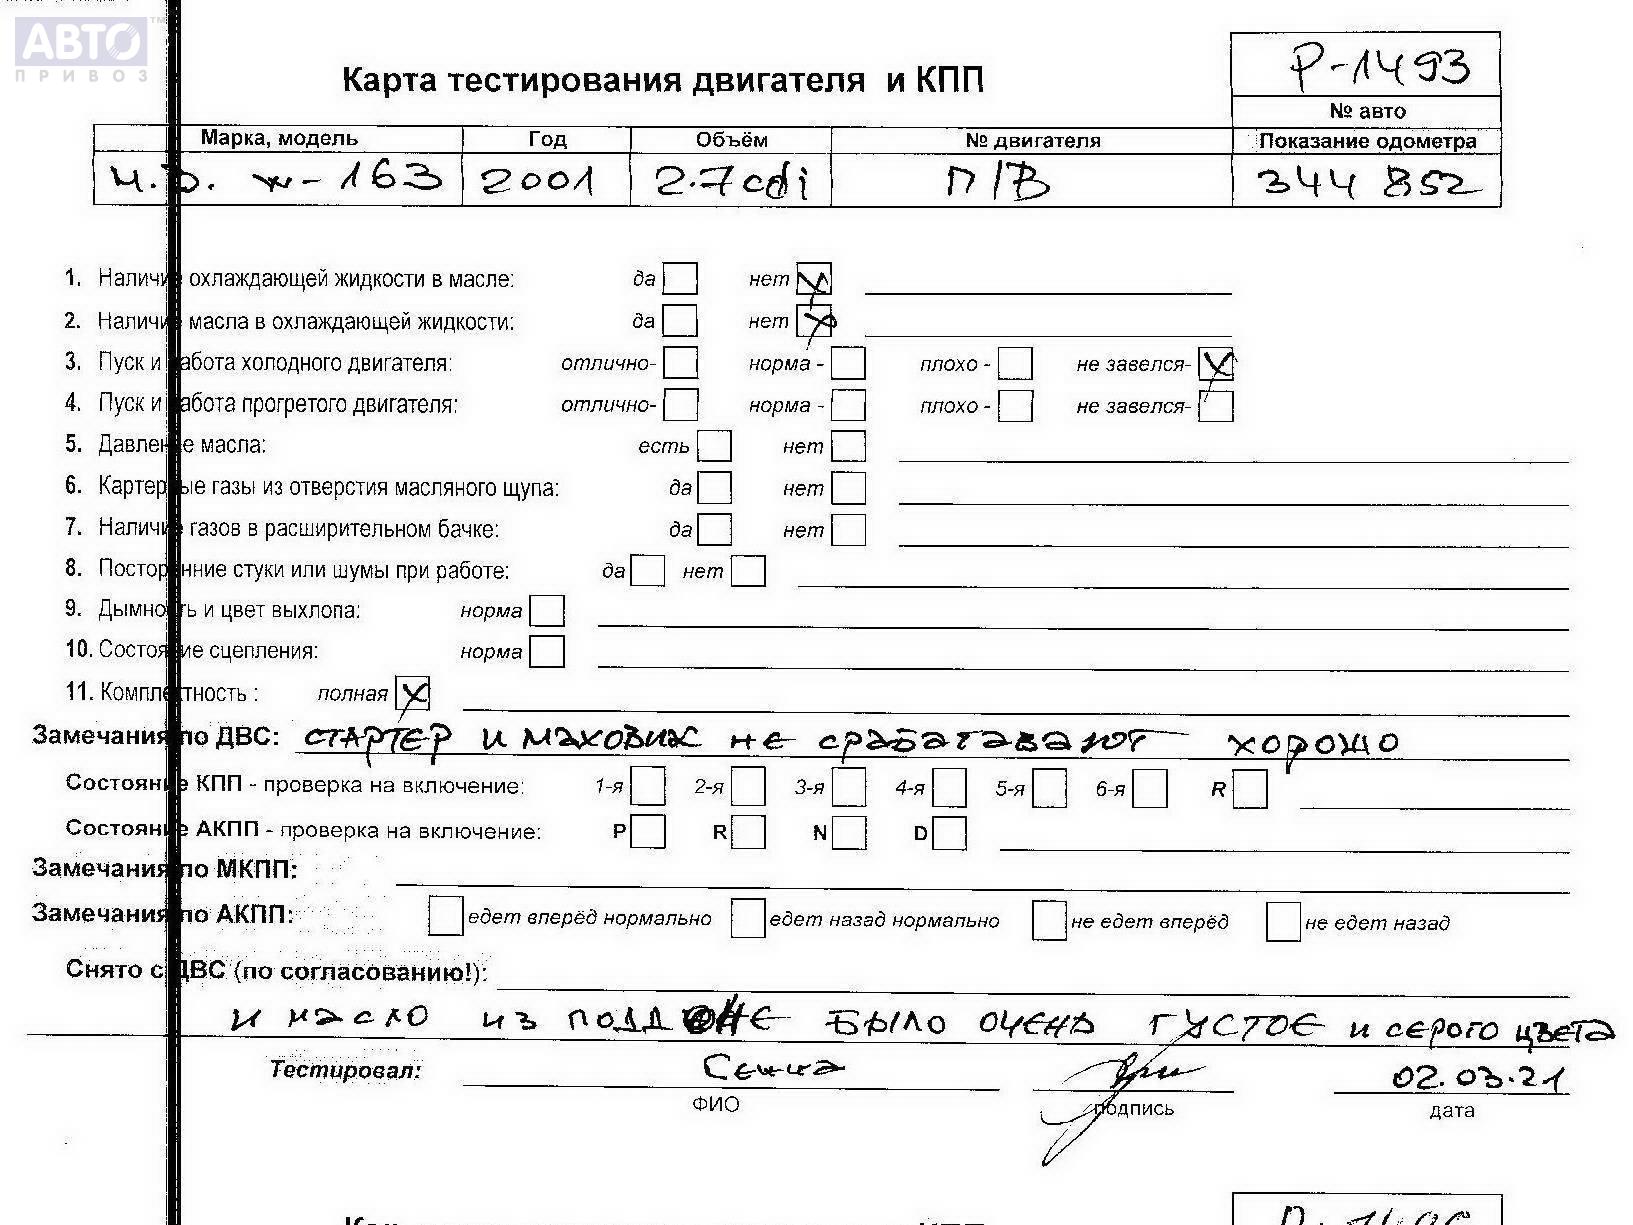 АВТО™
ПРИВОЗ
Р-1493
Карта тестирования двигателя и КПП
№ авто
Марка, модель Год Объём № двигателя Показание одометра
М.Б. w-163 2001 2.7cdi П/В 344 852
1. Наличие охлаждающей жидкости в масле: да нет X
2. Наличие масла в охлаждающей жидкости: да нет X
3. Пуск и работа холодного двигателя: отлично- норма - плохо - не завелся- X
4. Пуск и работа прогретого двигателя: отлично- норма - плохо - не завелся-
5. Давление масла: есть нет
6. Картерные газы из отверстия масляного щупа: да нет
7. Наличие газов в расширительном бачке: да нет
8. Посторонние стуки или шумы при работе: да нет
9. Дымность и цвет выхлопа: норма
10. Состояние сцепления: норма
11. Комплектность : полная X
Замечания по ДВС: СТАРТЕР и маховик не сработавают хорошо
Состояние КПП - проверка на включение: 1-я 2-я 3-я 4-я 5-я 6-я R
Состояние АКПП - проверка на включение: P R N D
Замечания по МКПП:
Замечания по АКПП: едет вперёд нормально едет назад нормально не едет вперёд не едет назад
Снято с ДВС (по согласованию!):
и масло из поддоне было очень густое и серого цвета
Тестировал: 02.03.21
ФИО подпись дата